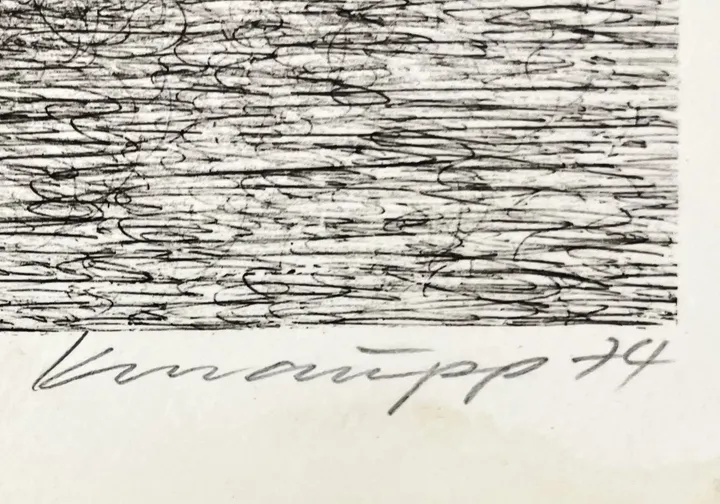 Knaupp 74